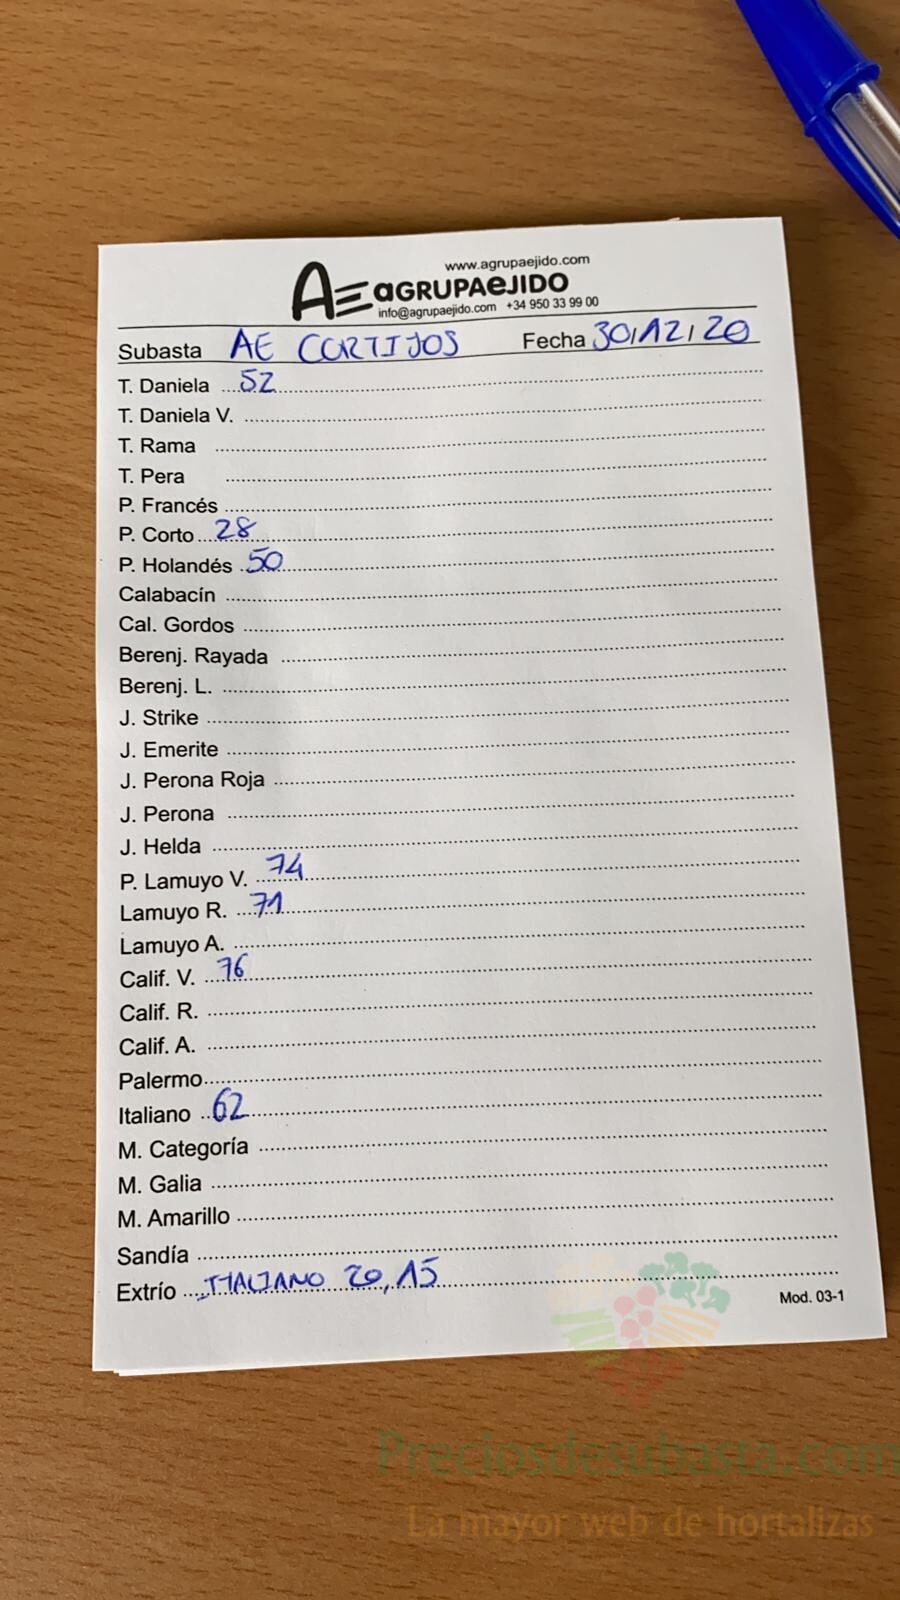 www.agrupaejido.com
AE aGRUPAeJIDO
info@agrupaejido.com +34 950 33 99 00
Subasta AE CORTIJOS Fecha 30/12/20
T. Daniela 52
T. Daniela V.
T. Rama
T. Pera
P. Francés
P. Corto 28
P. Holandés 50
Calabacín
Cal. Gordos
Berenj. Rayada
Berenj. L.
J. Strike
J. Emerite
J. Perona Roja
J. Perona
J. Helda
P. Lamuyo V. 74
Lamuyo R. 71
Lamuyo A.
Calif. V. 76
Calif. R.
Calif. A.
Palermo
Italiano 62
M. Categoría
M. Galia
M. Amarillo
Sandía
Extrío ITALIANO 20,15
Mod. 03-1
Preciosdesubasta.com
La mayor web de hortalizas